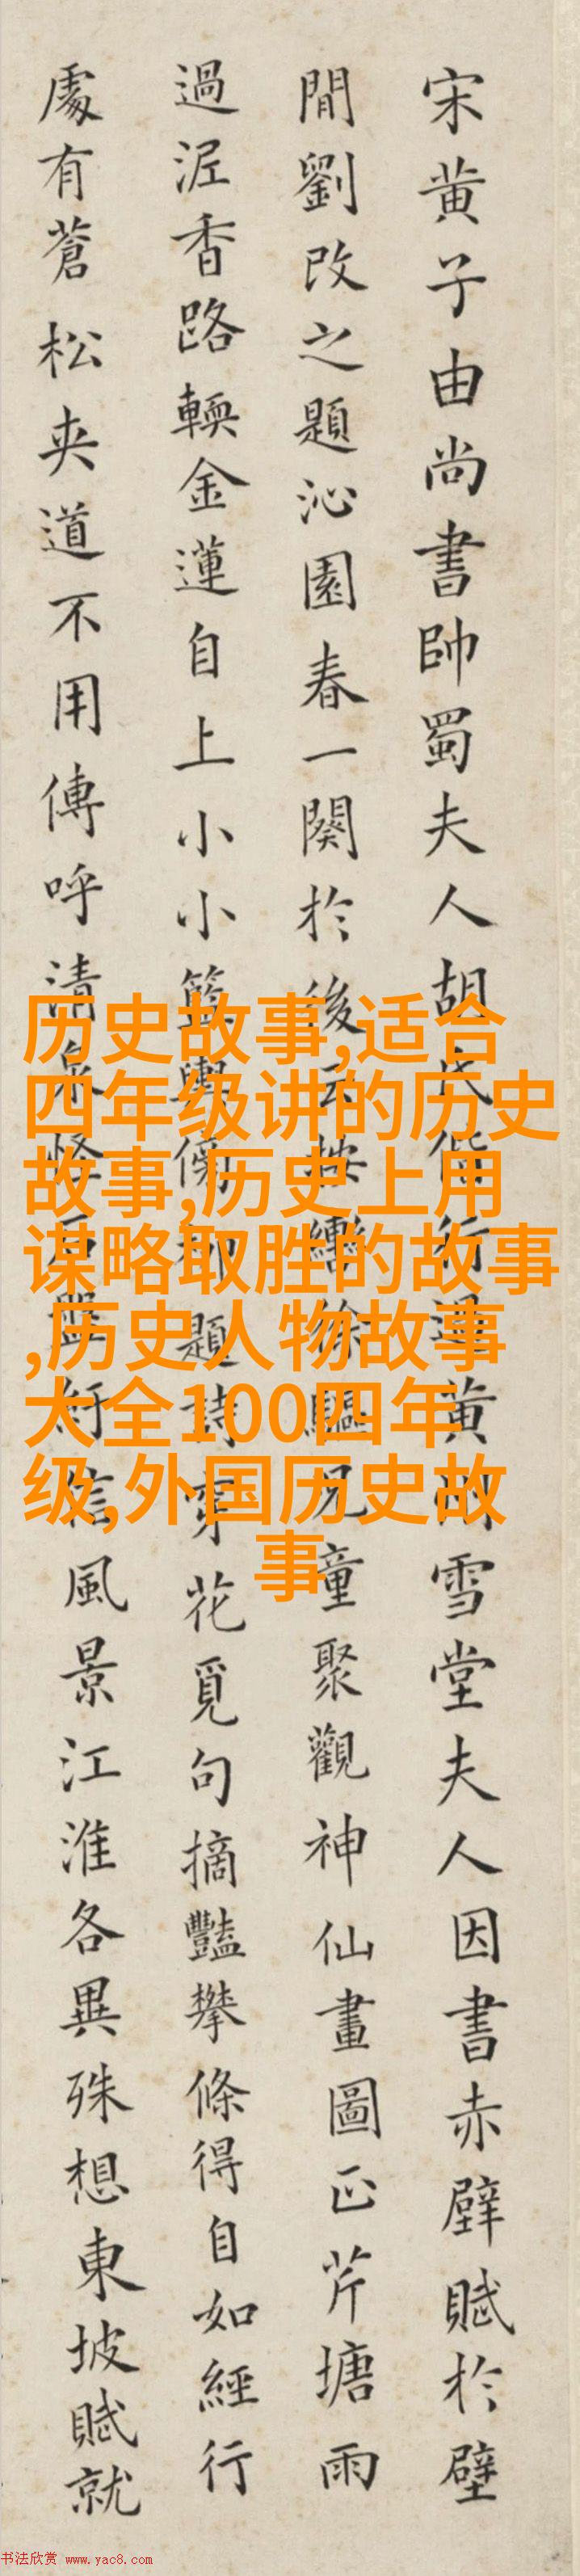 宋黄子由尚書帥蜀夫人胡氏偕行過黄州雪堂夫人因書赤壁賦於壁
間劉改之題沁園春一闋於後云按轡徐驅兒童聚觀神仙畫圖正芹塘雨
過泥香路輭金蓮自上小小籃輿傍柳題詩穿花覓句摘豔攀條得自如經行
處有蒼松夾道不用傳呼清泉怪石盤紆信風景江淮各異殊想東坡賦就
历史故事,适合
四年级讲的历史
故事,历史上用
谋略取胜的故事
,历史人物故事
大全100四年
级,外国历史故
事
书法欣赏 www.yac8.com